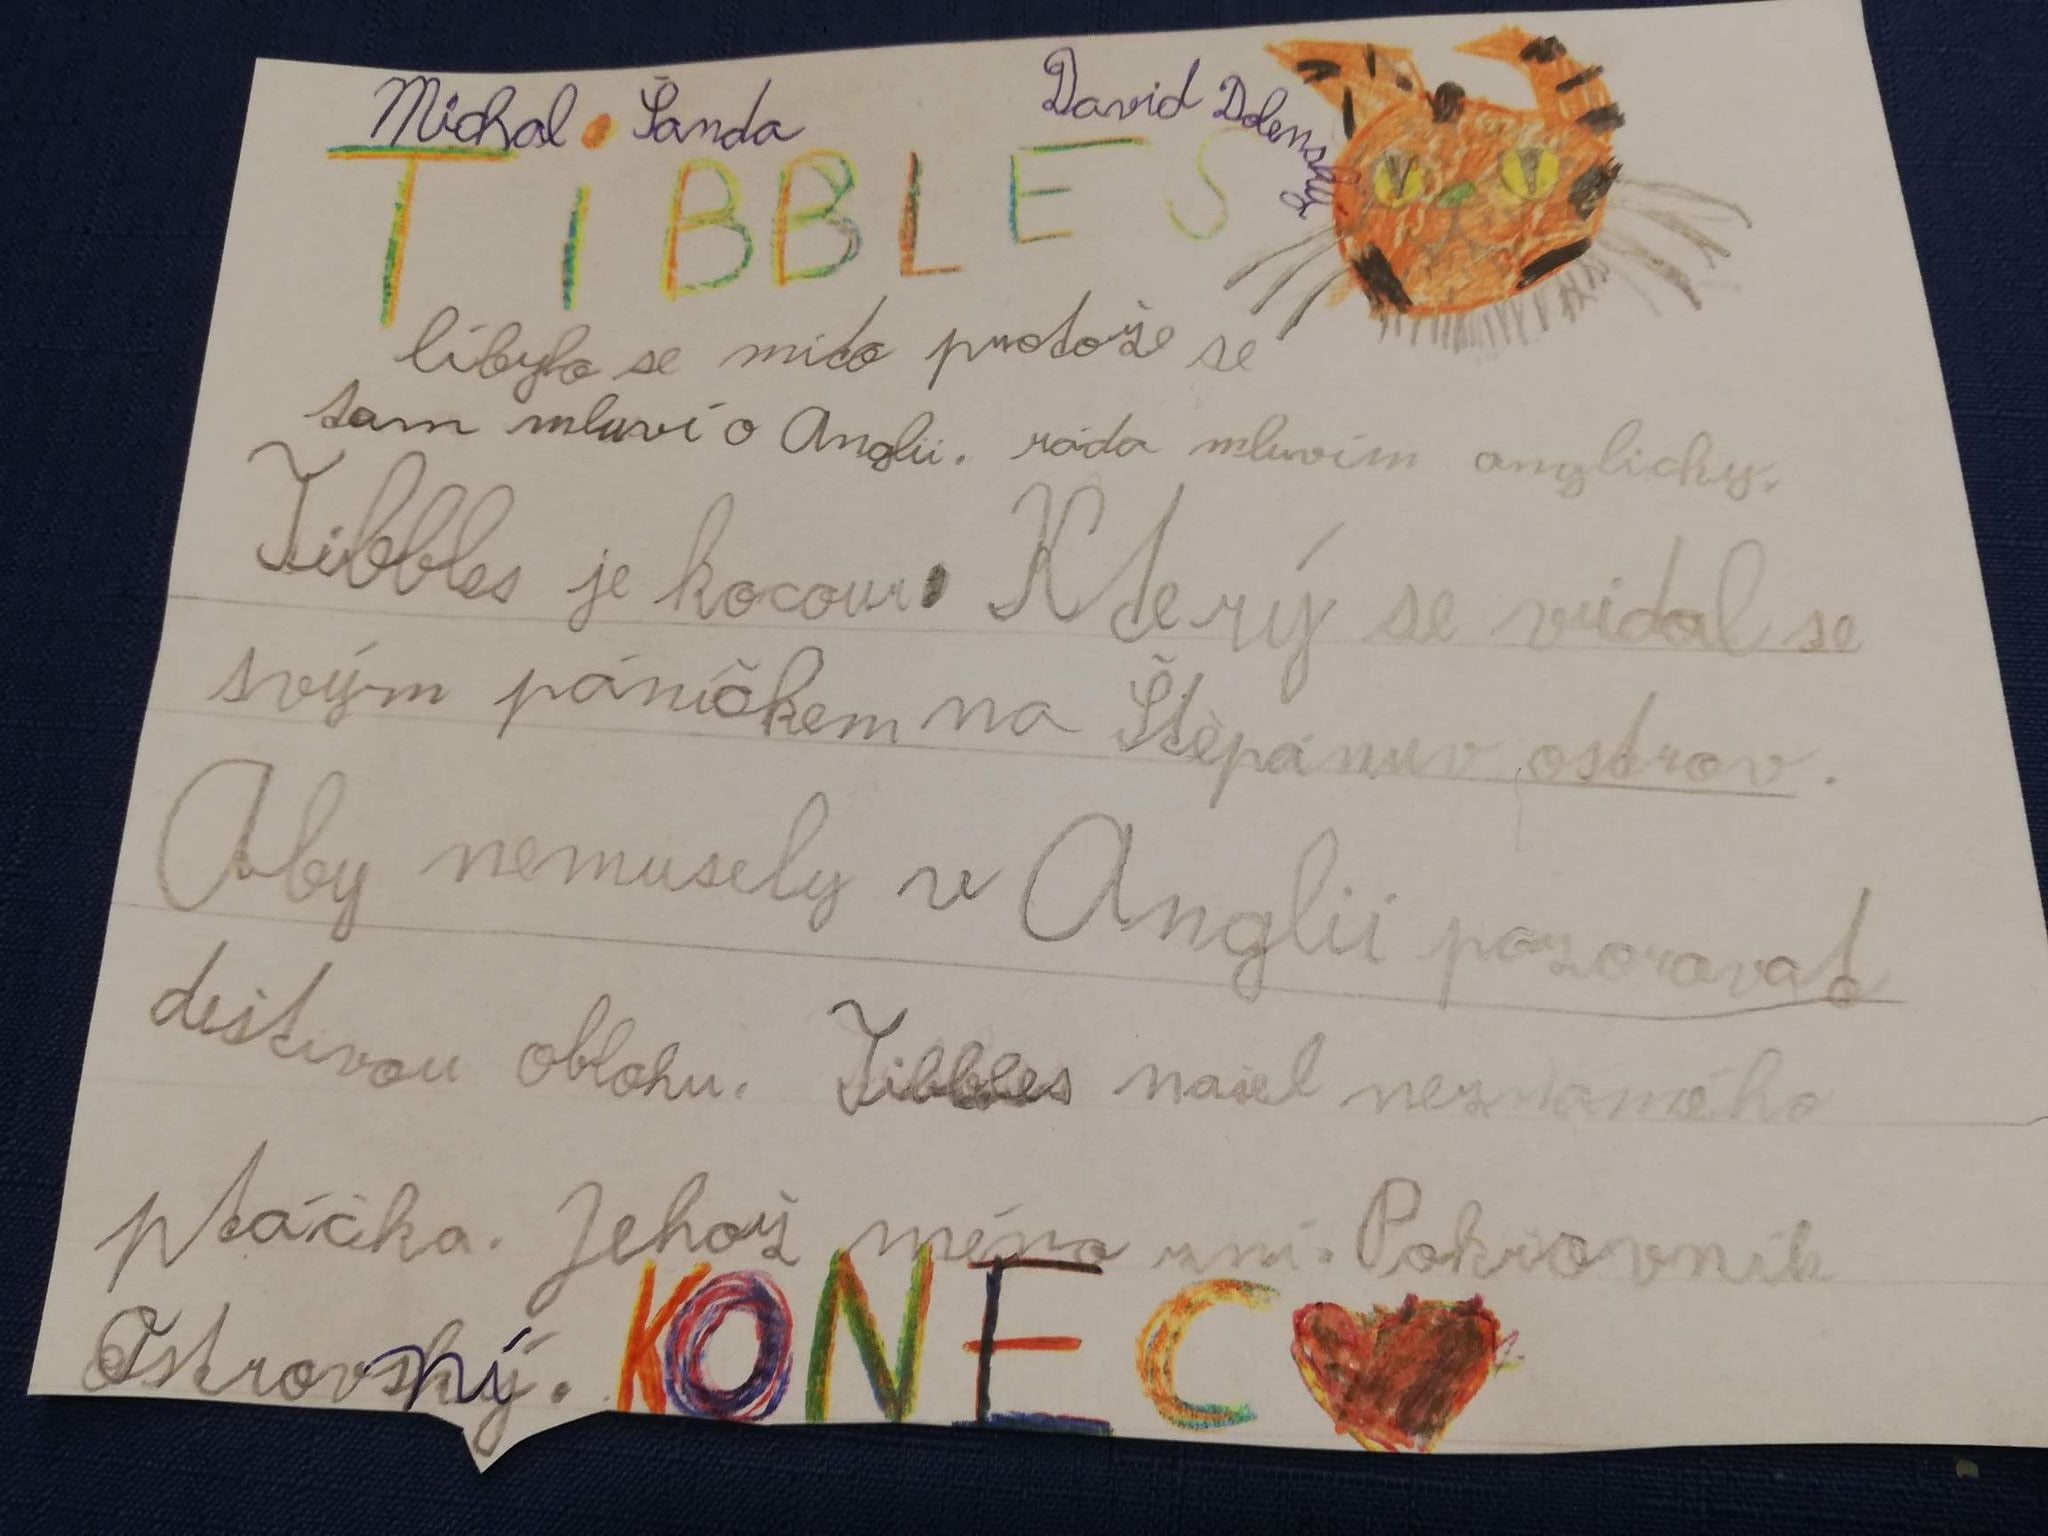 Michal Šanda
David Dolenský
TiBBLES
líbylo se mito protože se
tam mluví o Anglii. ráda mluvím anglicky.
Tibbles je kocour. Který se vidal se
svým páníčkem na Štěpánuv ostrov.
Aby nemusely v Anglii pozorovat
deštivou oblohu. Tibbles našel neznámého
ptáčka. Jehož méno zní. Pokřovník
Ostrovský. KONEC